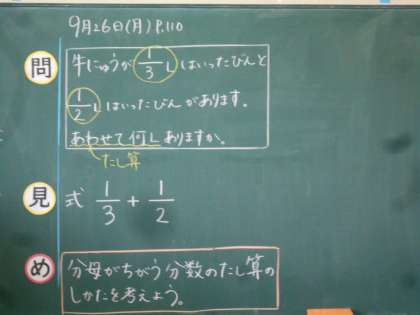 9月26日(月) P.110
問
牛にゅうが 1/3 L はいったびんと
1/2 L はいったびんがあります。
あわせて何L ありますか。
たし算
見
式 1/3 + 1/2
め
分母がちがう分数のたし算の
しかたを考えよう。